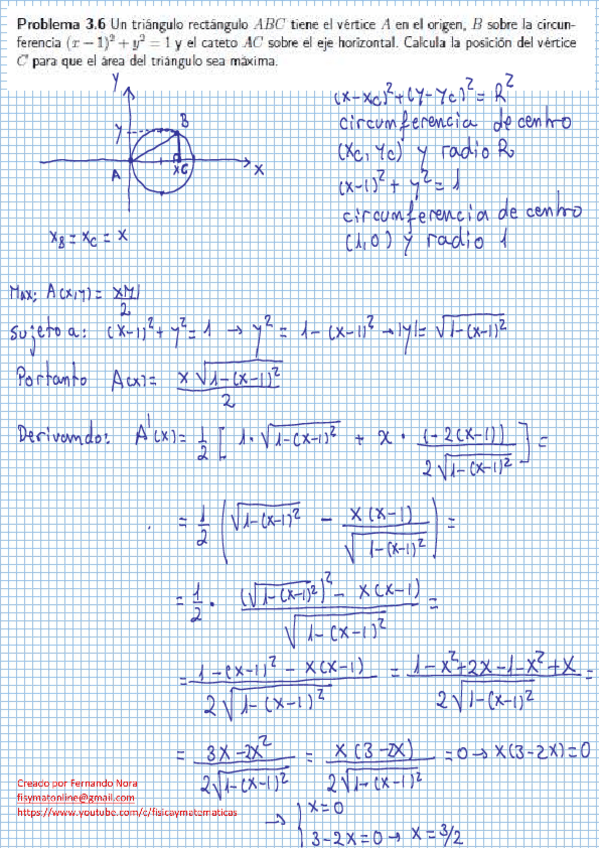 Problema 3.6 Un triángulo rectángulo ABC tiene el vértice A en el origen, B sobre la circun-
ferencia (x − 1)² + y² = 1 y el cateto AC sobre el eje horizontal. Calcula la posición del vértice
C para que el área del triángulo sea máxima.
Y
y
B
A
x
C
X
x_B = x_C = x
(x-x_C)² + (y-y_C)² = R²
circumferencia de centro
(x_C, y_C) y radio R
(x-1)² + y² = 1
circumferencia de centro
(1,0) y radio 1
Max: A(x,y) = x|y|/2
Sujeto a: (x-1)² + y² = 1 → y² = 1-(x-1)² → |y| = √(1-(x-1)²)
Por tanto A(x) = x√(1-(x-1)²) / 2
Derivando: A'(x) = 1/2 [1·√(1-(x-1)²) + x · (-2(x-1)) / (2√(1-(x-1)²))] =
= 1/2 (√(1-(x-1)²) - x(x-1) / √(1-(x-1)²)) =
= 1/2 · ((√(1-(x-1)²))² - x(x-1)) / √(1-(x-1)²) =
= (1-(x-1)² - x(x-1)) / (2√(1-(x-1)²)) = (1-x²+2x-1-x²+x) / (2√(1-(x-1)²)) =
= (3x-2x²) / (2√(1-(x-1)²)) = x(3-2x) / (2√(1-(x-1)²)) = 0 → x(3-2x) = 0
→ { x = 0
3-2x = 0 → x = 3/2
Creado por Fernando Nora
fisymatonline@gmail.com
https://www.youtube.com/c/fisicaymatematicas